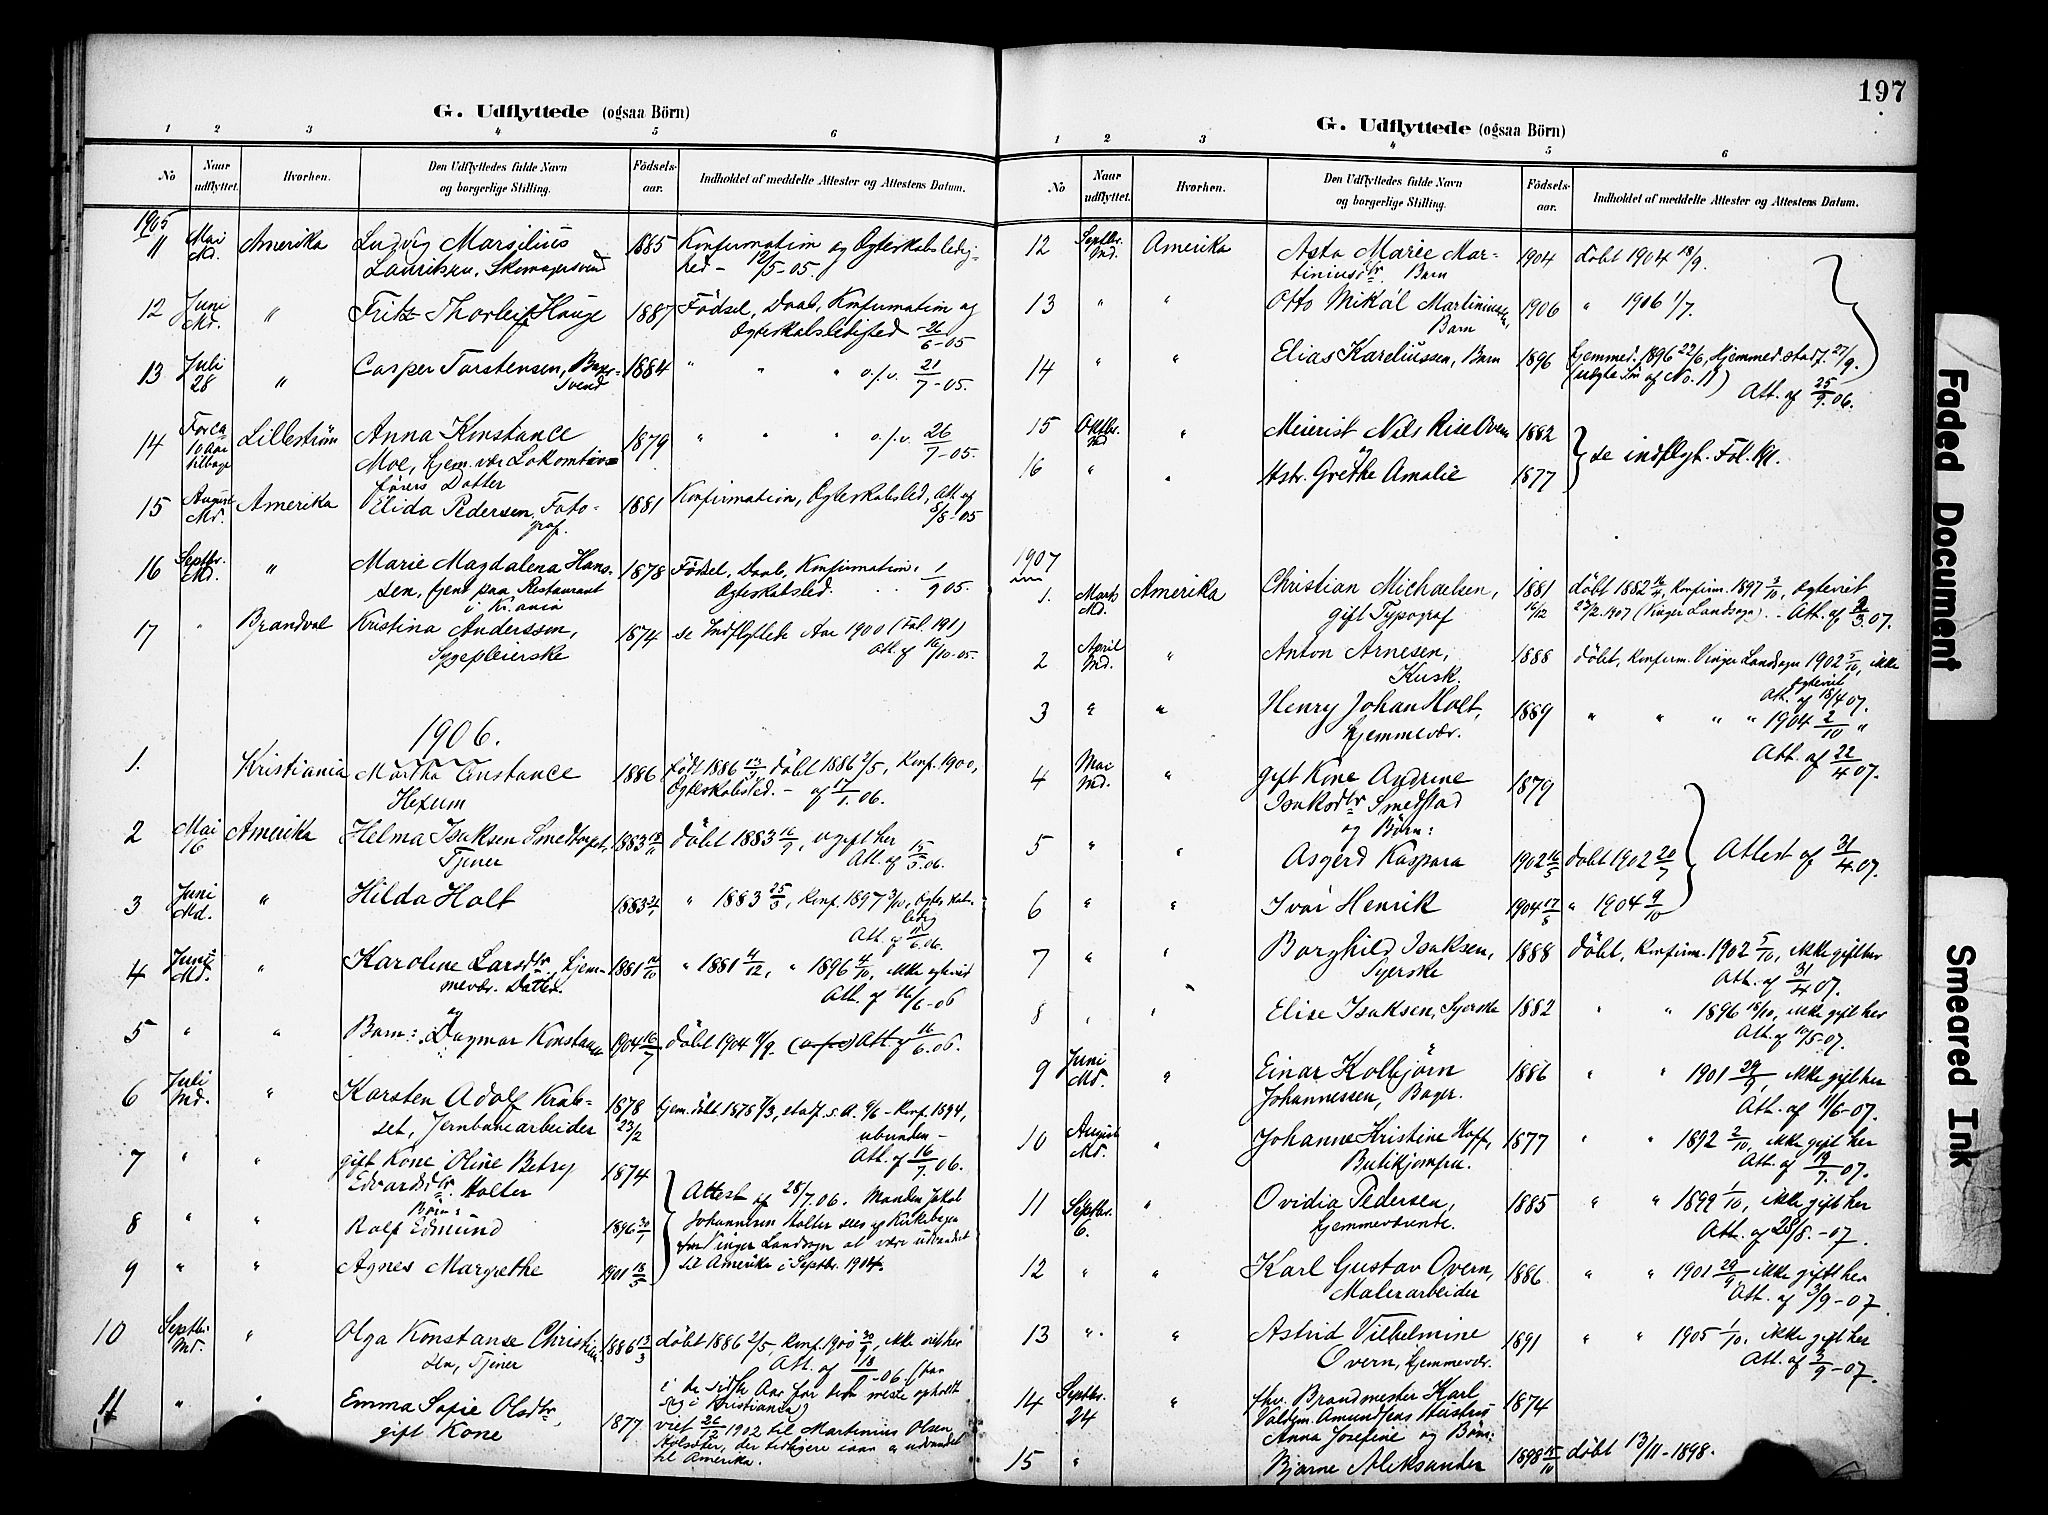 G. Udflyttede (ogsaa Börn)
1 2 3 4 5 6
No
Naar udflyttet.
Hvorhen.
Den Udflyttedes fulde Navn og borgerlige Stilling.
Födsels-aar.
Indholdet af meddelte Attester og Attestens Datum.
1905
11 Mai Md. Amerika Ludvig Marsilius 1885 Konfirmation og Ægteskabsledig-
Lauritzen, Skomagersvend hed - 12/5-05.
12 Juni Md. " Fritz Thorleif Hauge 1887 Födsel, Daab, Konfirmation og
Ægteskabsledighed 26/6-05
13 Juli 28 " Casper Torstensen, 1884 " " " o.f.v. 21/7-05.
Svend
14 For ca 10 Aar tilbage Lilleström Anna Konstance 1879 " " " o.f.v. 26/7-05.
Moe, hjem.vær Lokomotiv-
förers Datter
15 August Md. Amerika Elida Pedersen, Foto- 1881 Konfirmation, Ægteskabsled, Att. af
graf. 8/8-05
16 Septbr. Md. " Marie Magdalena Han- 1878 Födsel, Daab, Konfirmation,
sen, tjent paa Restaurant Ægteskabsled. 1/9 05.
i Kr.ania
17 " Brandval Kristina Anderssen, 1874 se Indflyttede Aar 1900 (Fol. 191)
Sygepleierske Att. af 16/10-05.
1906.
1. Kristiania Martha Constance 1886 Födt 1886 döbt 1886 2/5, Konf. 1900,
Hexum Ægteskabsled. - af 17/1.06.
2 Mai 16 Amerika Helma Isaksen Smedtorpet, 1883 döbt 1883 16/9, ugift her
Tjener Att. af 15/5.06.
3 Juni Md. " Hilda Holt 1883 " 1883 25/3, Konf. 1897 3/10, Ægteskabs-
ledig
Att. af 11/6.06.
4 Juni Md. " Karoline Larsdtr. hjem- 1881 14/10 " 1881 4/12, " 1896 4/10, ikke egtevied
mevær. Datter. Att. af 16/6-06
5 " " og Barn: Dagmar Konstanse 1904 16/7 döbt 1904 11/9. Att. af 16/6.06.
6 Juli Md. " Karsten Adolf Krab- 1878 hjem.döbt 1878 7/3, stadf. s.A. 9/6 - Konf. 1894,
set, Jernbanearbeider 23/2 ubunden -
Att. af 16/7 06.
7 " " gift Kone Oline Betzy 1874
Edvardsdtr. Holter Attest af 28/7.06. Manden Jakob
Börn:
8 " " Rolf Edmund 1896 Johannesen Holter sees af Kirkebogen
for Vinger Landsogn at være udvandret
9 " " Agnes Margrethe 1901 18/5 til Amerika i Septbr. 1904.
10 Septbr. Md. " Olga Konstanse Christian 1886 13/3 döbt 1886 2/5, Konf. 1900 30/9, ikke viet her
sen, Tjener Att. af 1/8-06. (har
i de sidste Aar for det meste opholdt
sig i Kristiania)
11 " " Emma Sofie Olsdtr, 1877 viet 26/12 1902 til Martinius Olsen
gift Kone der tidligere iaar er udvandret
til Amerika.
197
G. Udflyttede (ogsaa Börn)
1 2 3 4 5 6
No
Naar udflyttet.
Hvorhen.
Den Udflyttedes fulde Navn og borgerlige Stilling.
Födsels-aar.
Indholdet af meddelte Attester og Attestens Datum.
12 Septbr. Md. Amerika Asta Marie Mar- 1904 döbt 1904 18/9.
tiniusdtr. Barn
13 " " Otto Mikal Martiniussen, 1906 " 1906 1/7.
Barn
14 " " Elias Kareliussen, Barn 1896 hjemmed. 1896 22/6, hjemmed. stadf. 27/9.
(uægte Sön af No. 11)
Att. af 25/9.06.
15 Oktbr. Md " Meierist Nils Rise Overn 1882
se indflyt. Fol. 191.
16 " " Hstr. Grethe Amalie 1877
1907
1. Marts Md. Amerika Christian Michaelsen, 1881 döbt 1882 16/4, Konfirm. 1897 3/10, Ægteviet
gift Typograf 16/12 23/2. 1907 (Vinger Landsogn). - Att. af 9/3.07.
2 April Md. " Anton Arnesen, 1888 döbt, Konfirm. Vinger Landsogn 1902 5/10, ikke
Kusk. Ægteviet
Att. af 18/4 07.
3 " " Henry Johan Holt, 1889 " " " " 1904 2/10 "
hjemmevær. Att. af 22/4 07.
4 Mai Md. " gift Kone Andrine 1879
Isaksdtr Smedstad
og Börn:
5 " " Asgerd Kaspara 1902 16/5 döbt 1902 20/7 Attest af 31/4.07.
6 " " Ivar Henrik 1904 17/8 " 1904 9/10
7 " " Borghild Isaksen, 1888 döbt, Konfirm. 1902 5/10, ikke gift her
Syerske Att. af 31/4 07.
8 " " Elise Isaksen, Syerske 1882 " " 1896 18/10, ikke gift her
Att. af 10/5-07.
9 Juni Md. " Einar Kolbjörn 1886 " " 1901 29/9, ikke gift her
Johannessen, Bager. Att. af 11/6-07.
10 August Md. " Johanne Kristine Hoff, 1877 " " 1892 2/10, ikke gift her
Butikjomfru. Att. af 19/7.07.
11 Septbr. 6. " Ovidia Pedersen, 1885 " " 1899 1/10, ikke gift her
hjemmeværende. Att. af 28/8.-07.
12 " " Karl Gustav Overn, 1886 " " 1901 29/9 ikke gift her
Malerarbeider Att. af 3/9-07.
13 " " Astrid Vilhelmine 1891 " " 1905 1/10, ikke gift her
Overn, hjemmevær. Att. af 3/9-07.
14 Septbr. 24 " fhv. Brandmester Karl 1874
Valdem. Amundsens Hustru
Anna Josefine og Börn:
15 " Bjarne Aleksander 1898 15/10 döbt 13/11-1898.
Faded Document
Smeared Ink